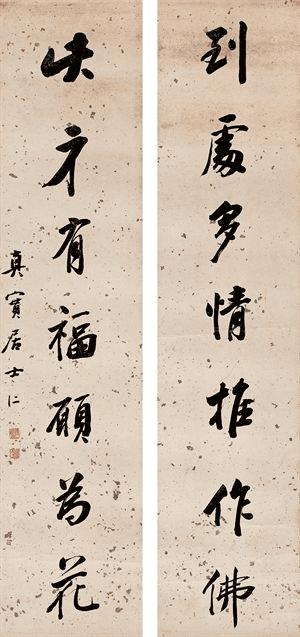 到處多情推作佛
此才有福願為花
真實居士仁